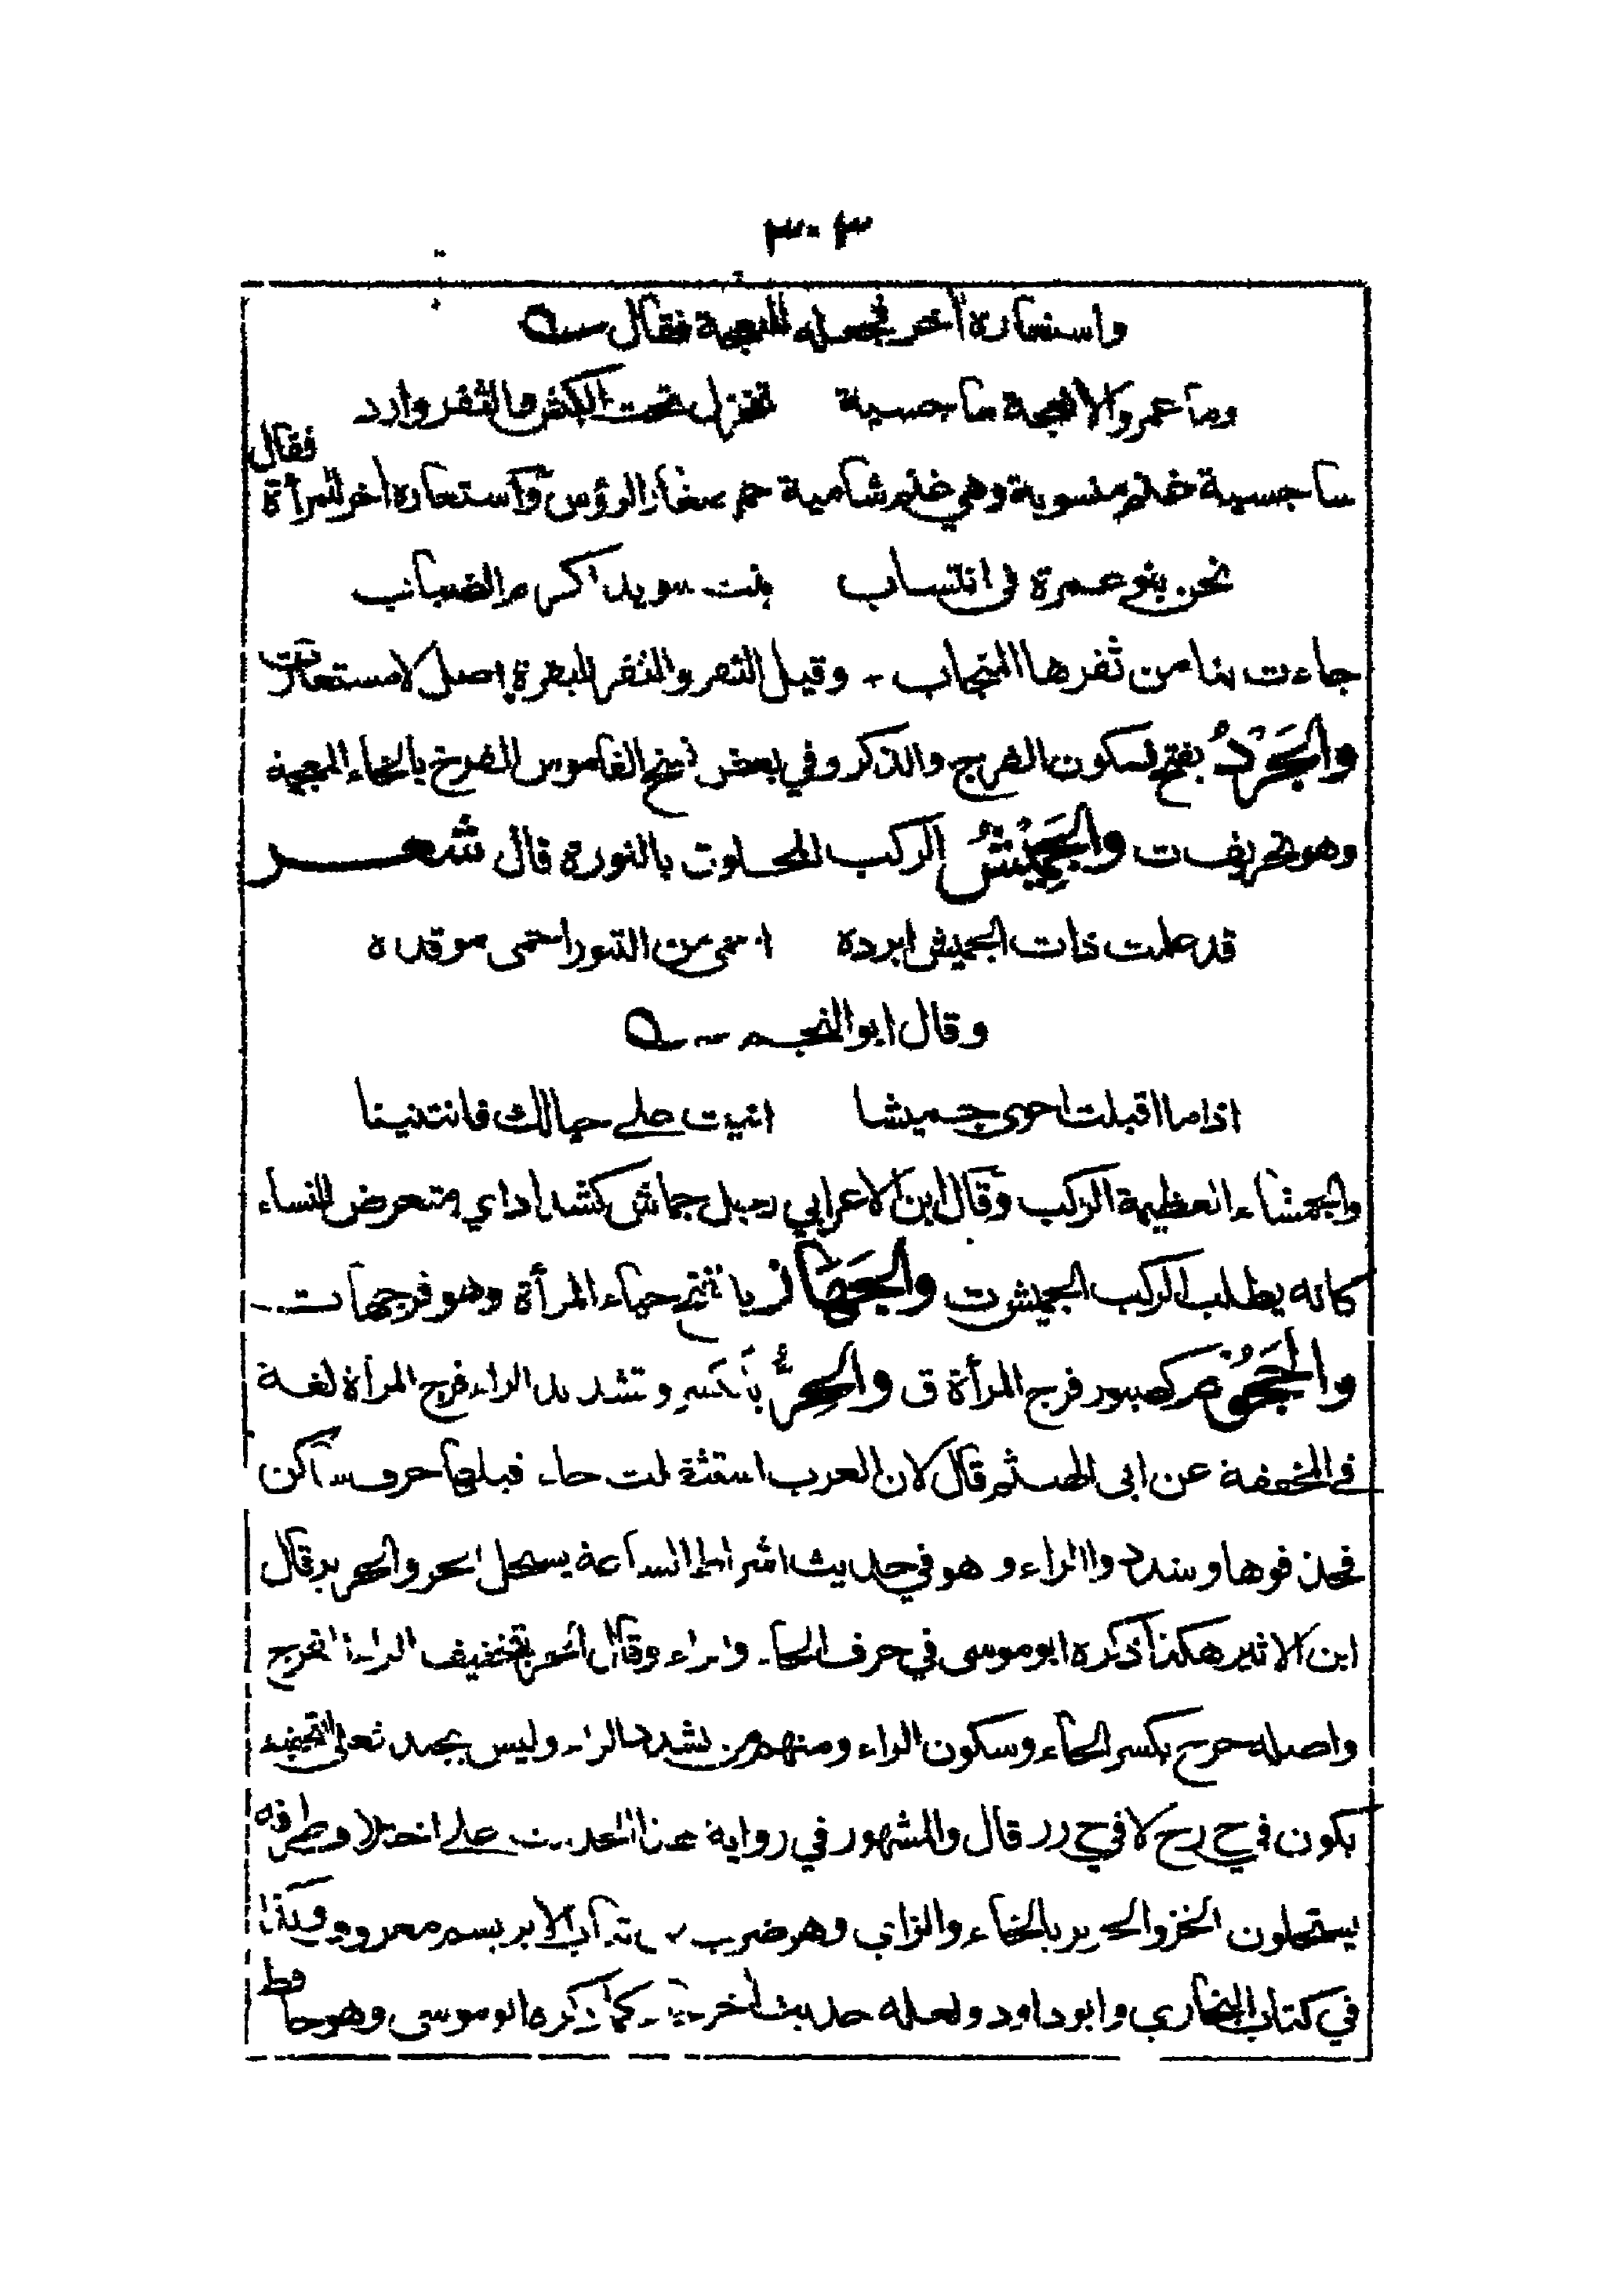 ٣٠٣
واستعاره آخر فجعله للنعجة فقال
وما عمرو الا نعجة ساجسية تخزل تحت الكبش والثفر وارد
ساجسية غنم منسوبة وهي غنم شامية حمر صغار الرؤس واستعاره اخر للمرأة فقال
نحن بنو عمرة في انتساب بنت سويد اكرم الضباب
جاءت بنا من ثفرها المنجاب - وقيل الثفر والثفر للبقرة اصل لا مستعار ت
والجَرْدُ بفتح فسكون الفرج والذكر وفي بعض نسخ القاموس الفرخ بالخاء المعجمة
وهو تحريف ت والجَمِيْشُ الركب المحلوق بالنورة قال شعر
قد علمت ذات الجميش ابرده احمى من التنور احمى موقده
وقال ابو النجم
اذا ما اقبلت احوى جميشا اتيت على حيالك فانتنينا
والجمشاء العظيمة الركب وقال ابن الاعرابي رجل جماش كشداد اي متعرض للنساء
كانه يطلب الركب الجميش ت والجَهَاز يا تفتح حياء المرأة وهو فرجها ت
والجَحُوْ كصبور فرج المرأة ق والحِرُّ بالكسر وتشديد الراء فرج المرأة لغة
في المخففة عن ابى الهيثم قال لان العرب استثقلت حاء قبلها حرف ساكن
فحذفوها وشددوا الراء وهو في حديث اشراط الساعة يستحل الحر والحرير قال
ابن الاثير هكذا ذكره ابو موسى في حرف الحاء والراء وقال الحر بتخفيف الراء الفرج
واصله حرح بكسر الحاء وسكون الراء ومنهم من يشدد الراء وليس بجيد فعلى التخفيف
يكون في ح رح لا في ح رر قال والمشهور في رواية هذا الحديث على اختلاف طرقه
يستحلون الخز والحرير بالخاء والزاي وهو ضرب من ثياب الابريسم معروف وكذا
في كتاب البخاري وابو داود ولعله حديث آخر كما ذكره ابو موسى وهو حافظ